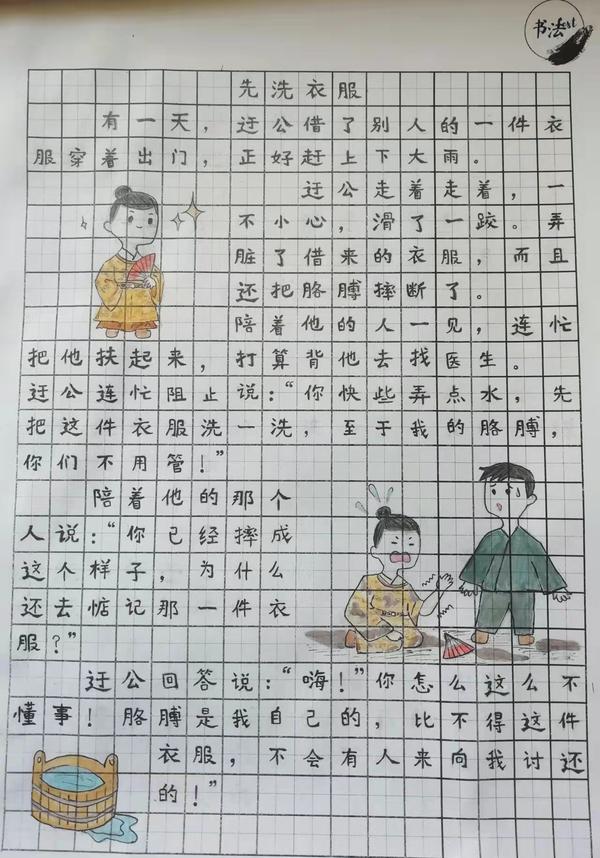 书法st
先洗衣服
有一天，迂公借了别人的一件衣
服穿着出门，正好赶上下大雨。
迂公走着走着，一
不小心，滑了一跤。弄
脏了借来的衣服，而且
还把胳膊摔断了。
陪着他的人一见，连忙
把他扶起来，打算背他去找医生。
迂公连忙阻止说：“你快些弄点水，先
把这件衣服洗一洗，至于我的胳膊，
你们不用管！”
陪着他的那个
人说：“你已经摔成
这个样子，为什么
还去惦记那一件衣
服？”
迂公回答说：“嗨！”你怎么这么不
懂事！胳膊是我自己的，比不得这件
衣服，不会有人来向我讨还
的！”